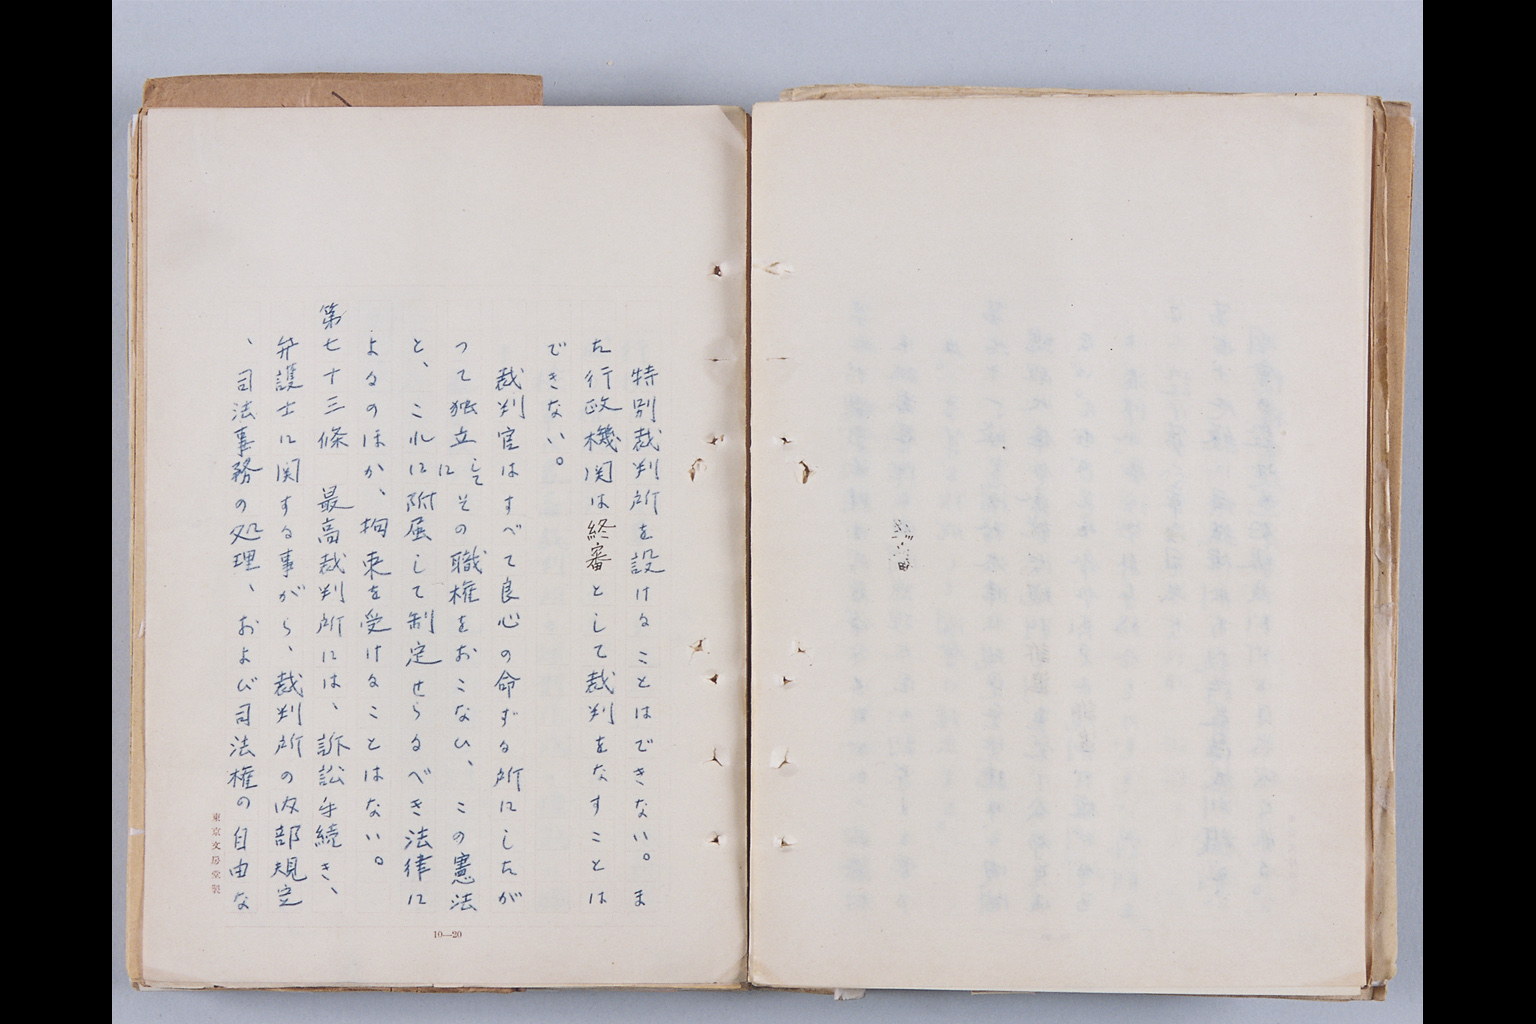 特別裁判所を設けることはできない。ま
た行政機関は終審として裁判をなすことは
できない。
裁判官はすべて良心の命ずる所にしたが
って独立にしてその職権をおこない、この憲法
と、これに附属して制定せらるべき法律に
よるのほか、拘束を受けることはない。
第七十三條　最高裁判所には、訴訟手続き、
弁護士に関する事がら、裁判所の内部規定
、司法事務の処理、および司法権の自由な
東京文房堂製
10—20